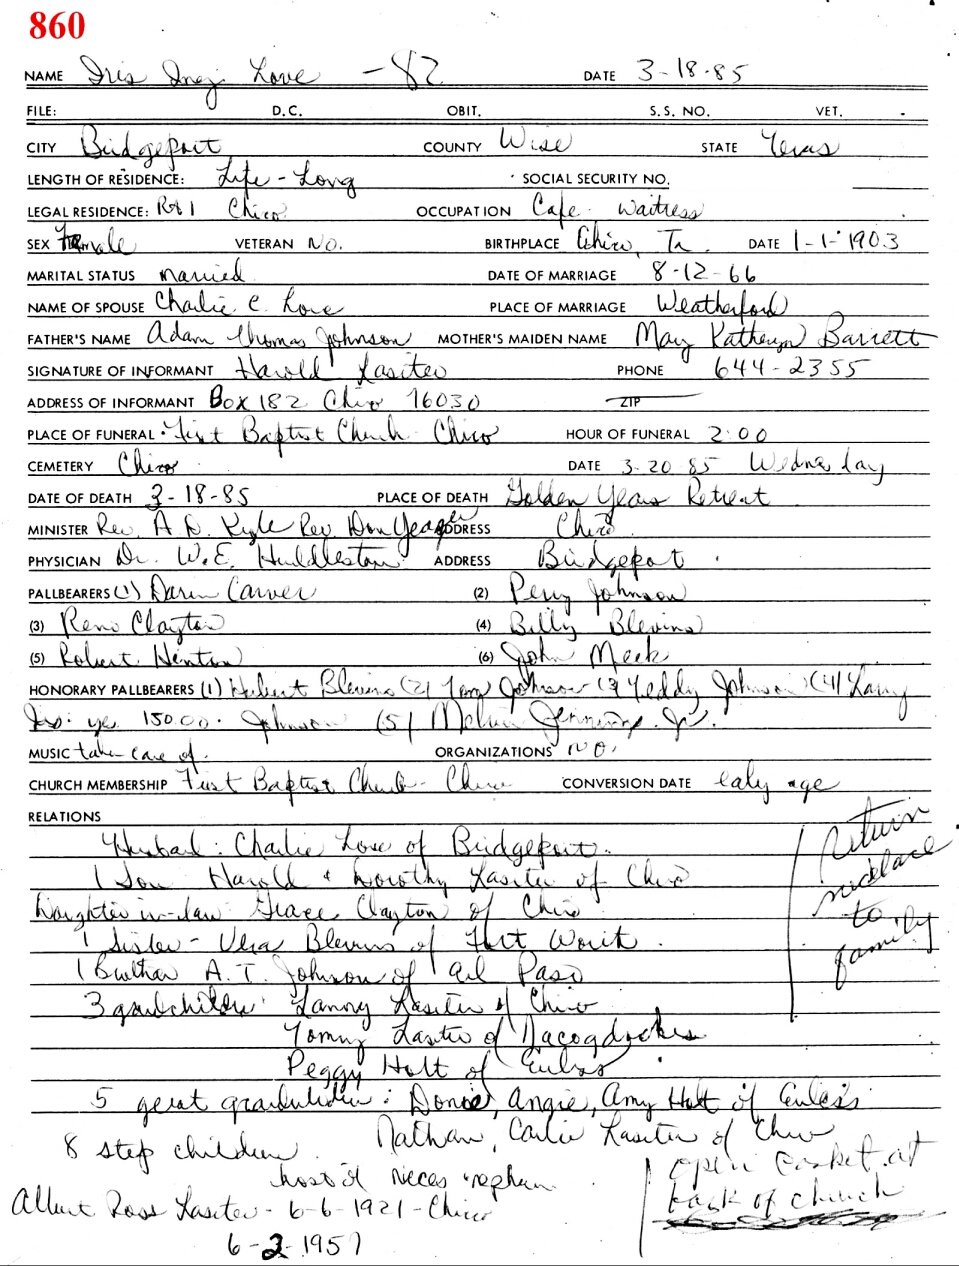 860
NAME Iris Inez Love - 82 DATE 3-18-85
FILE: D.C. OBIT. S.S. NO. VET.
CITY Bridgeport COUNTY Wise STATE Texas
LENGTH OF RESIDENCE: Life-Long SOCIAL SECURITY NO.
LEGAL RESIDENCE: Rt 1 Chico OCCUPATION Cafe Waitress
SEX Female VETERAN No. BIRTHPLACE Chico, Tx. DATE 1-1-1903
MARITAL STATUS married DATE OF MARRIAGE 8-12-66
NAME OF SPOUSE Charlie C. Love PLACE OF MARRIAGE Weatherford
FATHER'S NAME Adam Thomas Johnson MOTHER'S MAIDEN NAME May Katheryn Barrett
SIGNATURE OF INFORMANT Harold Lasiter PHONE 644-2355
ADDRESS OF INFORMANT Box 182 Chico 76030 ZIP
PLACE OF FUNERAL First Baptist Church Chico HOUR OF FUNERAL 2:00
CEMETERY Chico DATE 3-20-85 Wednesday
DATE OF DEATH 3-18-85 PLACE OF DEATH Golden Years Retreat
MINISTER Rev. A D. Kyle Rev. Don Yeager ADDRESS Chico
PHYSICIAN Dr. W.E. Huddleston ADDRESS Bridgeport
PALLBEARERS (1) Darin Carver (2) Perry Johnson
(3) Reno Clayton (4) Billy Blevins
(5) Robert Henton (6) John Meek
HONORARY PALLBEARERS (1) Hubert Blevins (2) Tony Johnson (3 Teddy Johnson (4) Larry
Ins: yes 1500.00. Johnson (5) Melvin Jennings Jr.
MUSIC taken care of ORGANIZATIONS NO.
CHURCH MEMBERSHIP First Baptist Church - Chico CONVERSION DATE ealy age
RELATIONS
Husband: Charlie Love of Bridgeport.
1 Son Harold & Dorothy Lasiter of Chico
Daughter in-law Grace Clayton of Chico
1 Sister - Vera Blevins of Fort Worth
1 Brother A. T. Johnson of El Paso
3 grandchildren Lanny Lasiter of Chico
Tommy Lasiter of Nacogdoches
Peggy Holt of Euless
5 gerat grandchildren: Donie, Angie, Amy Holt of Euless
Nathan, Carlie Lasiter of Chico
8 step children
host of nieces nephew
Albert Ross Lasiter - 6-6-1921 - Chico
6-2-1957
return
necklace
to
family
open casket at
back of church